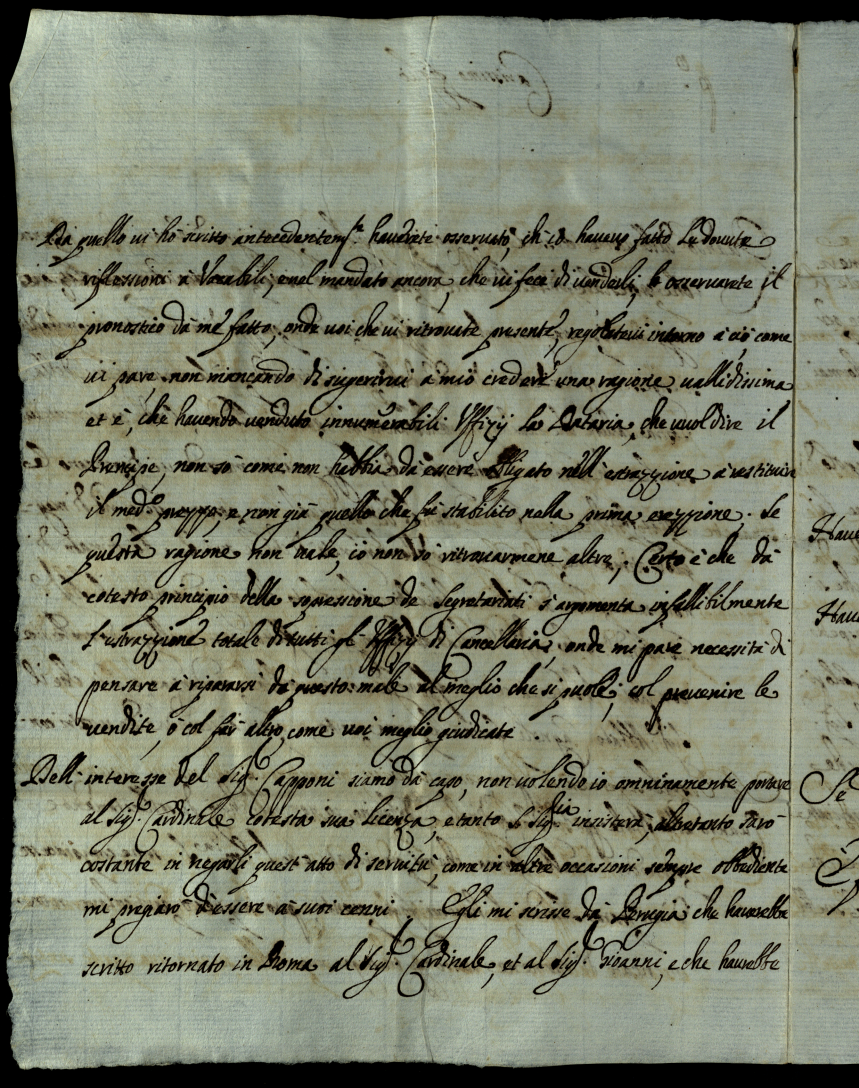 Da quello vi hò scritto antecedentem.te haverete osservato, ch'io havevo fatto le dovute
riflessioni à Vacabili, e nel mandato ancora, che vi feci di venderli, osservarete il
pronostico da mè fatto, onde voi che vi ritrovate presente, regolatevi intorno à ciò come
vi pare non mancando di suggerirvi à mio credere una ragione vallidissima
et è, che havendo venduto innumerabili Uffizij la Dataria, che vuol dire il
Prencipe, non sò come non habbia da essere obligato nell'estrazzione à restituire
il med.o prezzo, e non già quello che fù stabilito nella prima erezzione. Se
questa ragione non vale, iò non sò ritrovarmene altra, Certo è che da
cotesto principio della sopressione de Segretariati s'argomenta infallibilmente
l'estrazzione totale di tutti gl'Uffizij di Cancellaria, onde mi pare necessità di
pensare à ripararsi da questo male al meglio che si puole, col prevenire le
vendite, ò col far altro come voi meglio giudicate
Dell'interesse del Sig.r Capponi siamo da capo, non volendo io omninamente portare
al Sig.r Cardinale cotesta sua licenza, e tanto S. Sig.ria insisterà, altretanto sarò
costante in negarli quest'atto di servitù, come in altre occasioni sempre obbediente
mi pregiarò d'essere à suoi cenni. Egli mi scrisse da Perugia che haverebbe
scritto ritornato in Roma al Sig.r Cardinale, et al Sig.r Gioanni, e che haverebbe